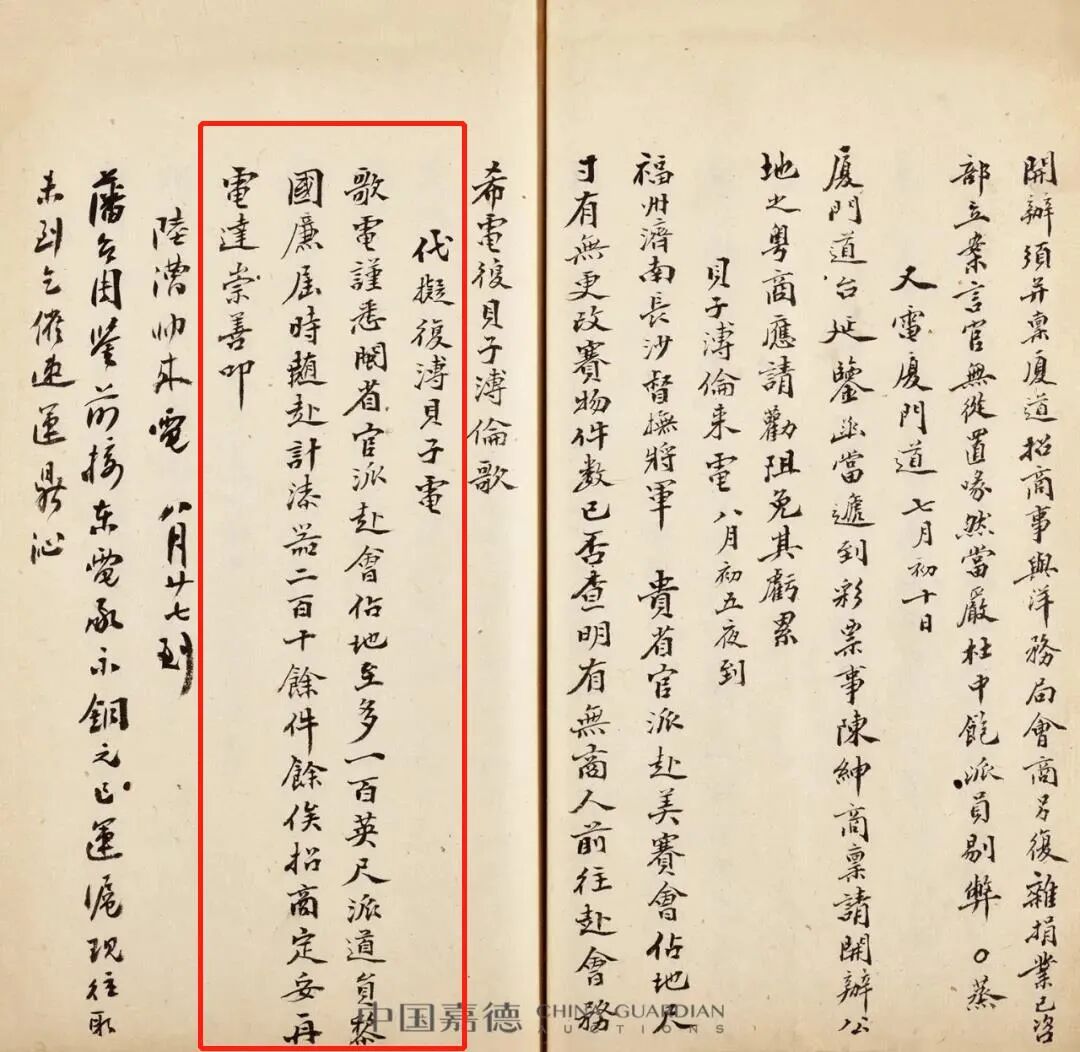 開辦須并稟廈道招商事與洋務局會商另復雜捐業已咨
部立案言官無從置喙然當嚴杜中飽派員剔弊〇蒸
又電廈門道 七月初十日
廈門道台延鑒幽當遞到彩票事陳紳商稟請開辦公
地之粵商應請勸阻免其虧累
貝子溥倫來電 八月初五夜到
福州濟南長沙督撫將軍 貴省官派赴美賽會佔地尺
寸有無更改賽物件數已否查明有無商人前往赴會務
希電復貝子溥倫歌
代擬復溥貝子電
歌電謹悉閩省官派赴會佔地至多一百英尺派道員黎
國廉屆時趨赴計漆器二百十餘件餘俟招商定妥再
電達崇善叩
陸漕帥來電 八月廿七到
藩台周鑒前接東電承示銅元已運滬現往取
未到乞催速運鼎沁
中国嘉德 CHINA GUARDIAN
AUCTIONS